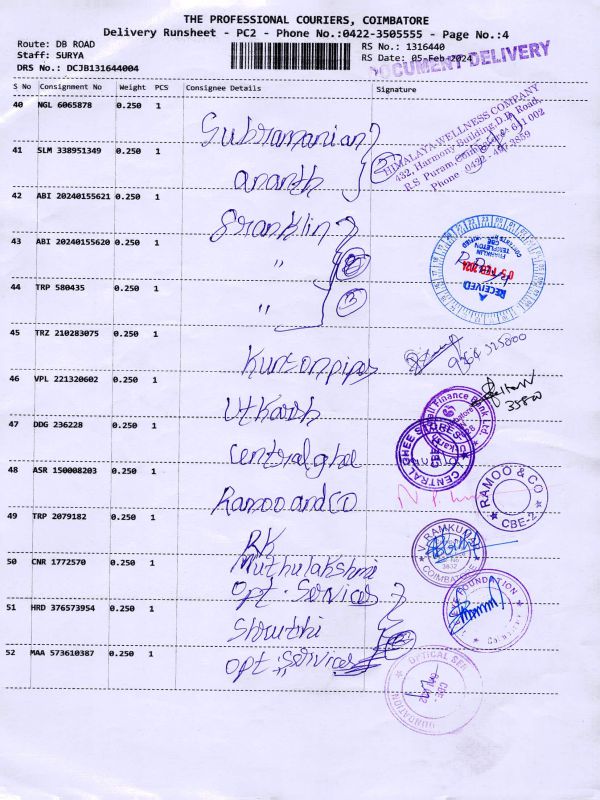 THE PROFESSIONAL COURIERS, COIMBATORE
Delivery Runsheet - PC2 - Phone No.:0422-3505555 - Page No.:4
Route: DB ROAD
Staff: SURYA
DRS No.: DCJB131644004
RS No.: 1316440
RS Date: 05-Feb-2024
DOCUMENT DELIVERY
S No Consignment No Weight PCS Consignee Details Signature
40 NGL 6065878 0.250 1
Subramanian
HIMALAYA WELLNESS COMPANY
432, Harmony Building, D.B. Road,
R.S. Puram, Coimbatore - 641 002
Phone
41 SLM 338951349 0.250 1
ananth
42 ABI 20240155621 0.250 1
Franklin
43 ABI 20240155620 0.250 1
"
RECEIVED
FRANKLIN
TEMPLETON
CBE
44 TRP 580435 0.250 1
"
45 TRZ 210283075 0.250 1
Kurtonpipes
46 VPL 221320602 0.250 1
Utkarsh
Finance Bank Ltd.
47 DDG 236228 0.250 1
Centralghee
CENTRAL GHEE STORES
48 ASR 150008203 0.250 1
Ramoo and Co
RAMOO & CO
CBE-2
49 TRP 2079182 0.250 1
RK
V. RAMKUMAR
COIMBATORE
50 CNR 1772570 0.250 1
Muthulakshmi
Opt. Services
FOUNDATION
51 HRD 376573954 0.250 1
Shruthi
52 MAA 573610387 0.250 1
Opt. Services
"
OPTICAL SER